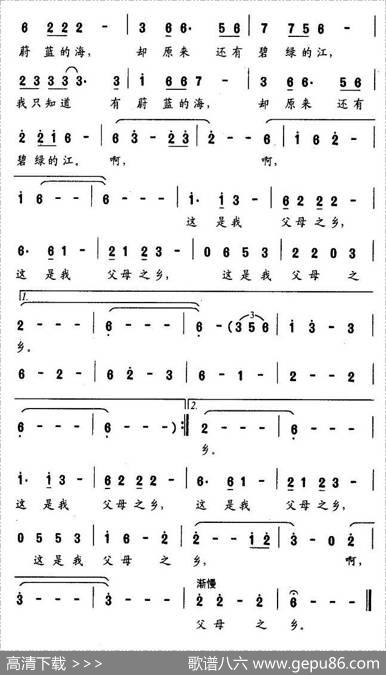 6 2 2 2 - | 3 6 6· 5 6 | 7 7 5 6 - |
蔚 蓝 的 海， 却 原 来 还 有 碧 绿 的 江，
2 3 3 3 3 3· 3 | 1 6 6 7 - | 3 6 6· 5 6 |
我 只 知 道 有 蔚 蓝 的 海， 却 原 来 还 有
2 2 1 6 - | 6 3 - 2 3 | 2 - - - | 1 6 2 - |
碧 绿 的 江。 啊， 啊，
1 6 - - | 6 - - - | 1· 1 3 - | 6 2 2 2 - |
这 是 我 父 母 之 乡，
6· 6 1 - | 2 1 2 3 - | 0 6 5 3 | 2 2 0 3 |
这 是 我 父 母 之 乡， 这 是 我 父 母 之
1.
2 - - - | 6 - - - | 6 - (3 5 6 | 1 3 - 3 |
3
乡。
6 - 2 - | 6 2 - 3 | 6 - 1 - | 2 - - 2 |
2.
6 - - - | 6 - - - ) :‖ 2 - - - | 6 - - - |
乡。
1· 1 3 - | 6 2 2 2 - | 6· 6 1 - | 2 1 2 2 - |
这 是 我 父 母 之 乡， 这 是 我 父 母 之 乡，
0 5 5 3 | 1 6 - 2 | 2 - - 1 2 | 3 - 0 2 |
这 是 我 父 母 之 乡， 啊，
渐慢
3 - - - | 3 - - - | 2 2 - 2 | 6 - - ‖
父 母 之 乡。
高清下载 >>> 歌谱八六 www.gepu86.com